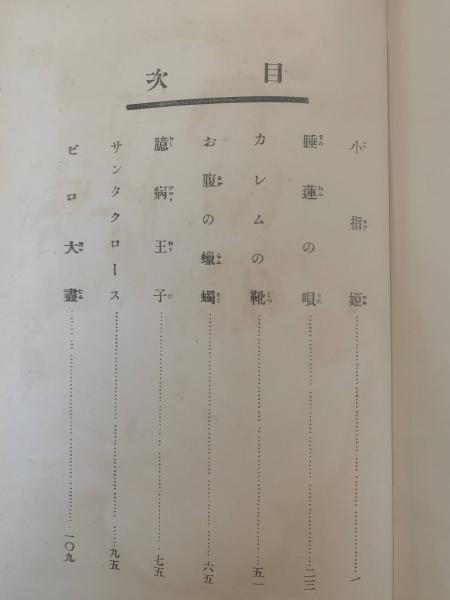 目次
小指姫……一
睡蓮の唄……二三
カレムの靴……五一
お腹の蠟蠋……六五
臆病王子……七五
サンタクロース……九五
ピロ大盡……一〇九